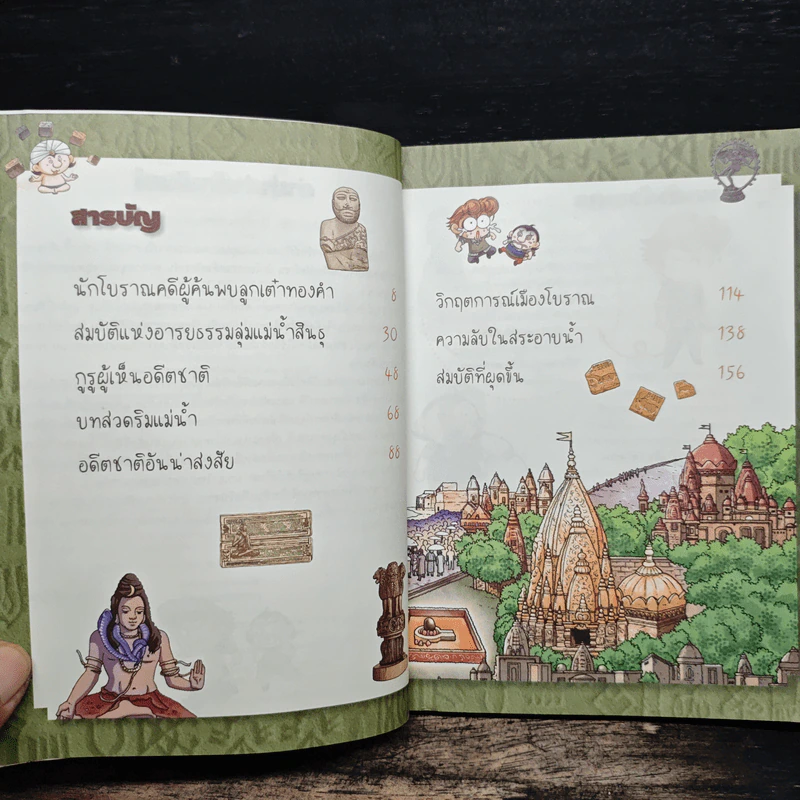 สารบัญ
นักโบราณคดีผู้ค้นพบลูกเต๋าทองคำ 8
สมบัติแห่งอารยธรรมลุ่มแม่น้ำสินธุ 30
กูรูผู้เห็นอดีตชาติ 48
บทสวดริมแม่น้ำ 68
อดีตชาติอันน่าสงสัย 88
วิกฤตการณ์เมืองโบราณ 114
ความลับในสระอาบน้ำ 138
สมบัติที่ผุดขึ้น 156